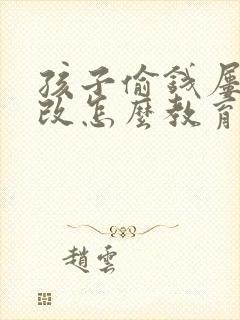 孩子偷錢屢
改怎麼教育
趙雲